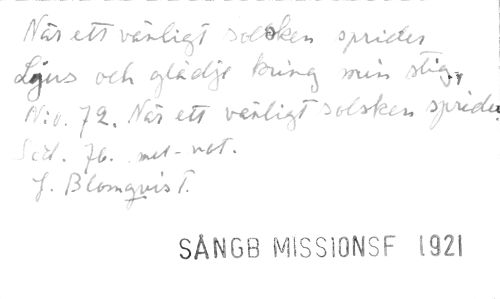 När ett vänligt solsken sprider
Ljus och glädje kring min stig,
N:o. 72. När ett vänligt solsken sprider
Sid. 76. met-not.
J. Blomqvist.
SÅNGB MISSIONSF 1921